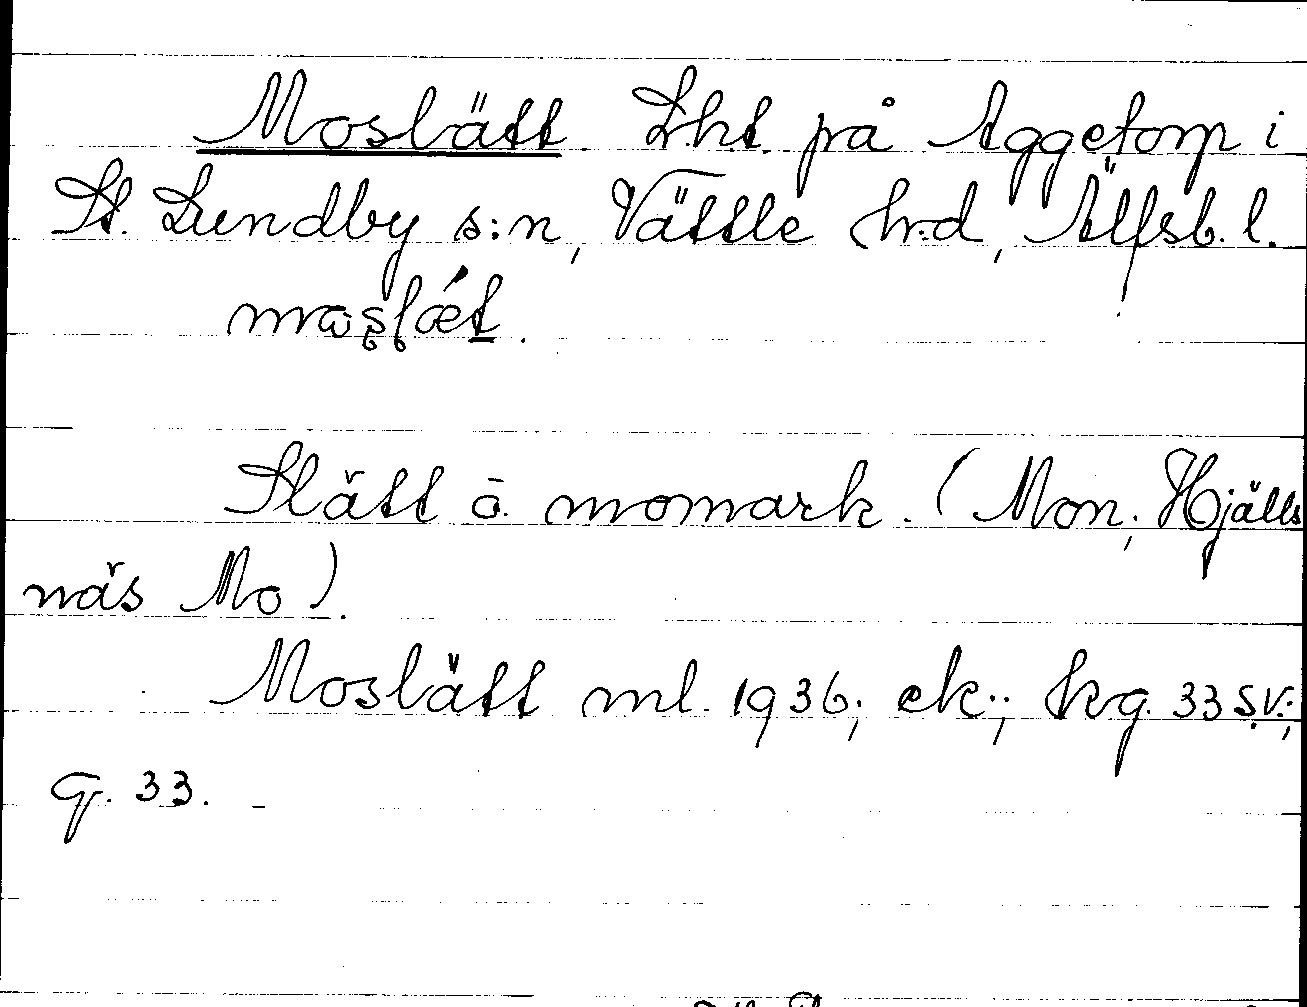 Moslätt Lht. på Aggetorp i
St. Lundby s:n, Vättle hr:d, Älfsb. l.
Slätt å momark. (Mon; Hjälls
näs Mo).
Moslätt ml. 1936; ek.; kg. 33 SV.;
g. 33.